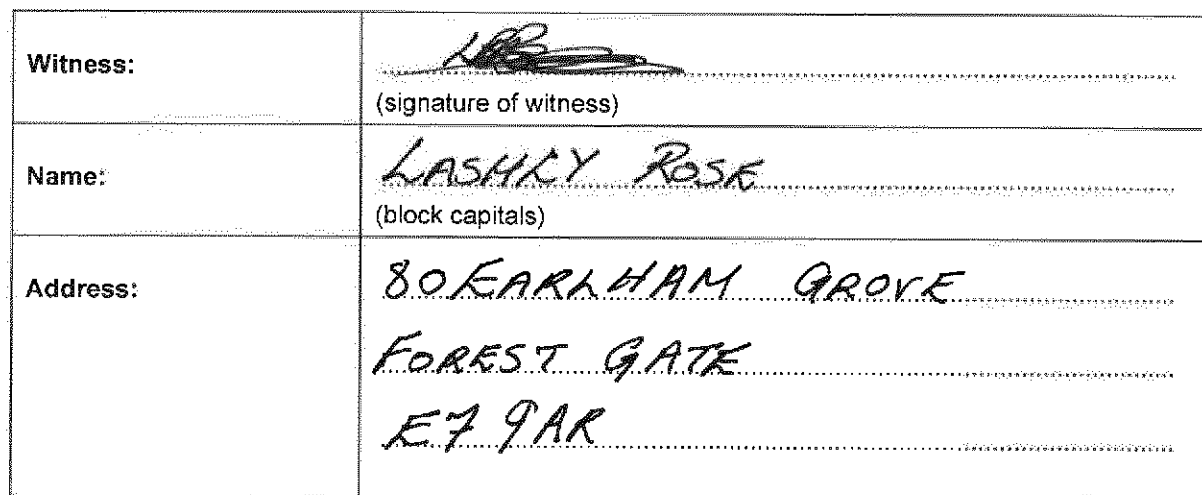 Witness:
(signature of witness)
Name:
LASHLY ROSE
(block capitals)
Address:
80 EARLHAM GROVE
FOREST GATE
E7 9AR